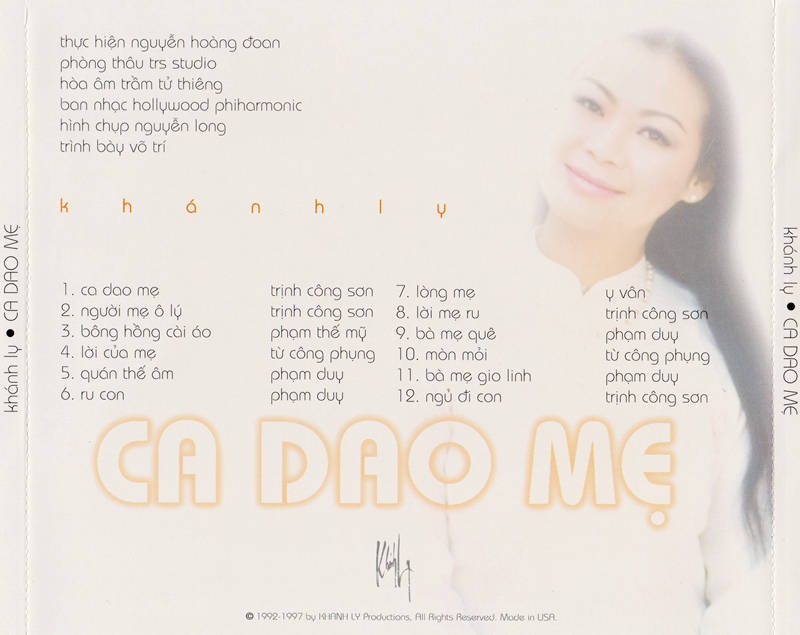 thực hiện nguyễn hoàng đoan
phòng thâu trs studio
hòa âm trầm tử thiêng
ban nhạc hollywood phiharmonic
hình chụp nguyễn long
trình bày võ trí
khánh ly
1. ca dao mẹ trịnh công sơn
2. người mẹ ô lý trịnh công sơn
3. bông hồng cài áo phạm thế mỹ
4. lời của mẹ từ công phụng
5. quán thế âm phạm duy
6. ru con phạm duy
7. lòng mẹ y vân
8. lời mẹ ru trịnh công sơn
9. bà mẹ quê phạm duy
10. mòn mỏi từ công phụng
11. bà mẹ gio linh phạm duy
12. ngủ đi con trịnh công sơn
CA DAO MẸ
Khánh Ly
© 1992-1997 by KHANH LY Productions, All Rights Reserved. Made in USA.
khánh ly • CA DAO MẸ
khánh ly • CA DAO MẸ